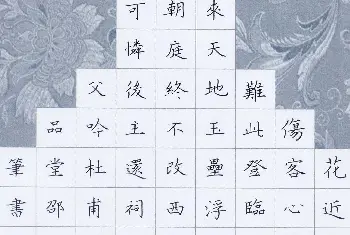 花近
傷客心
難此登臨
來天地玉壘浮
朝庭終不改西
可憐後主還祠
父吟杜甫
品堂邵
筆書